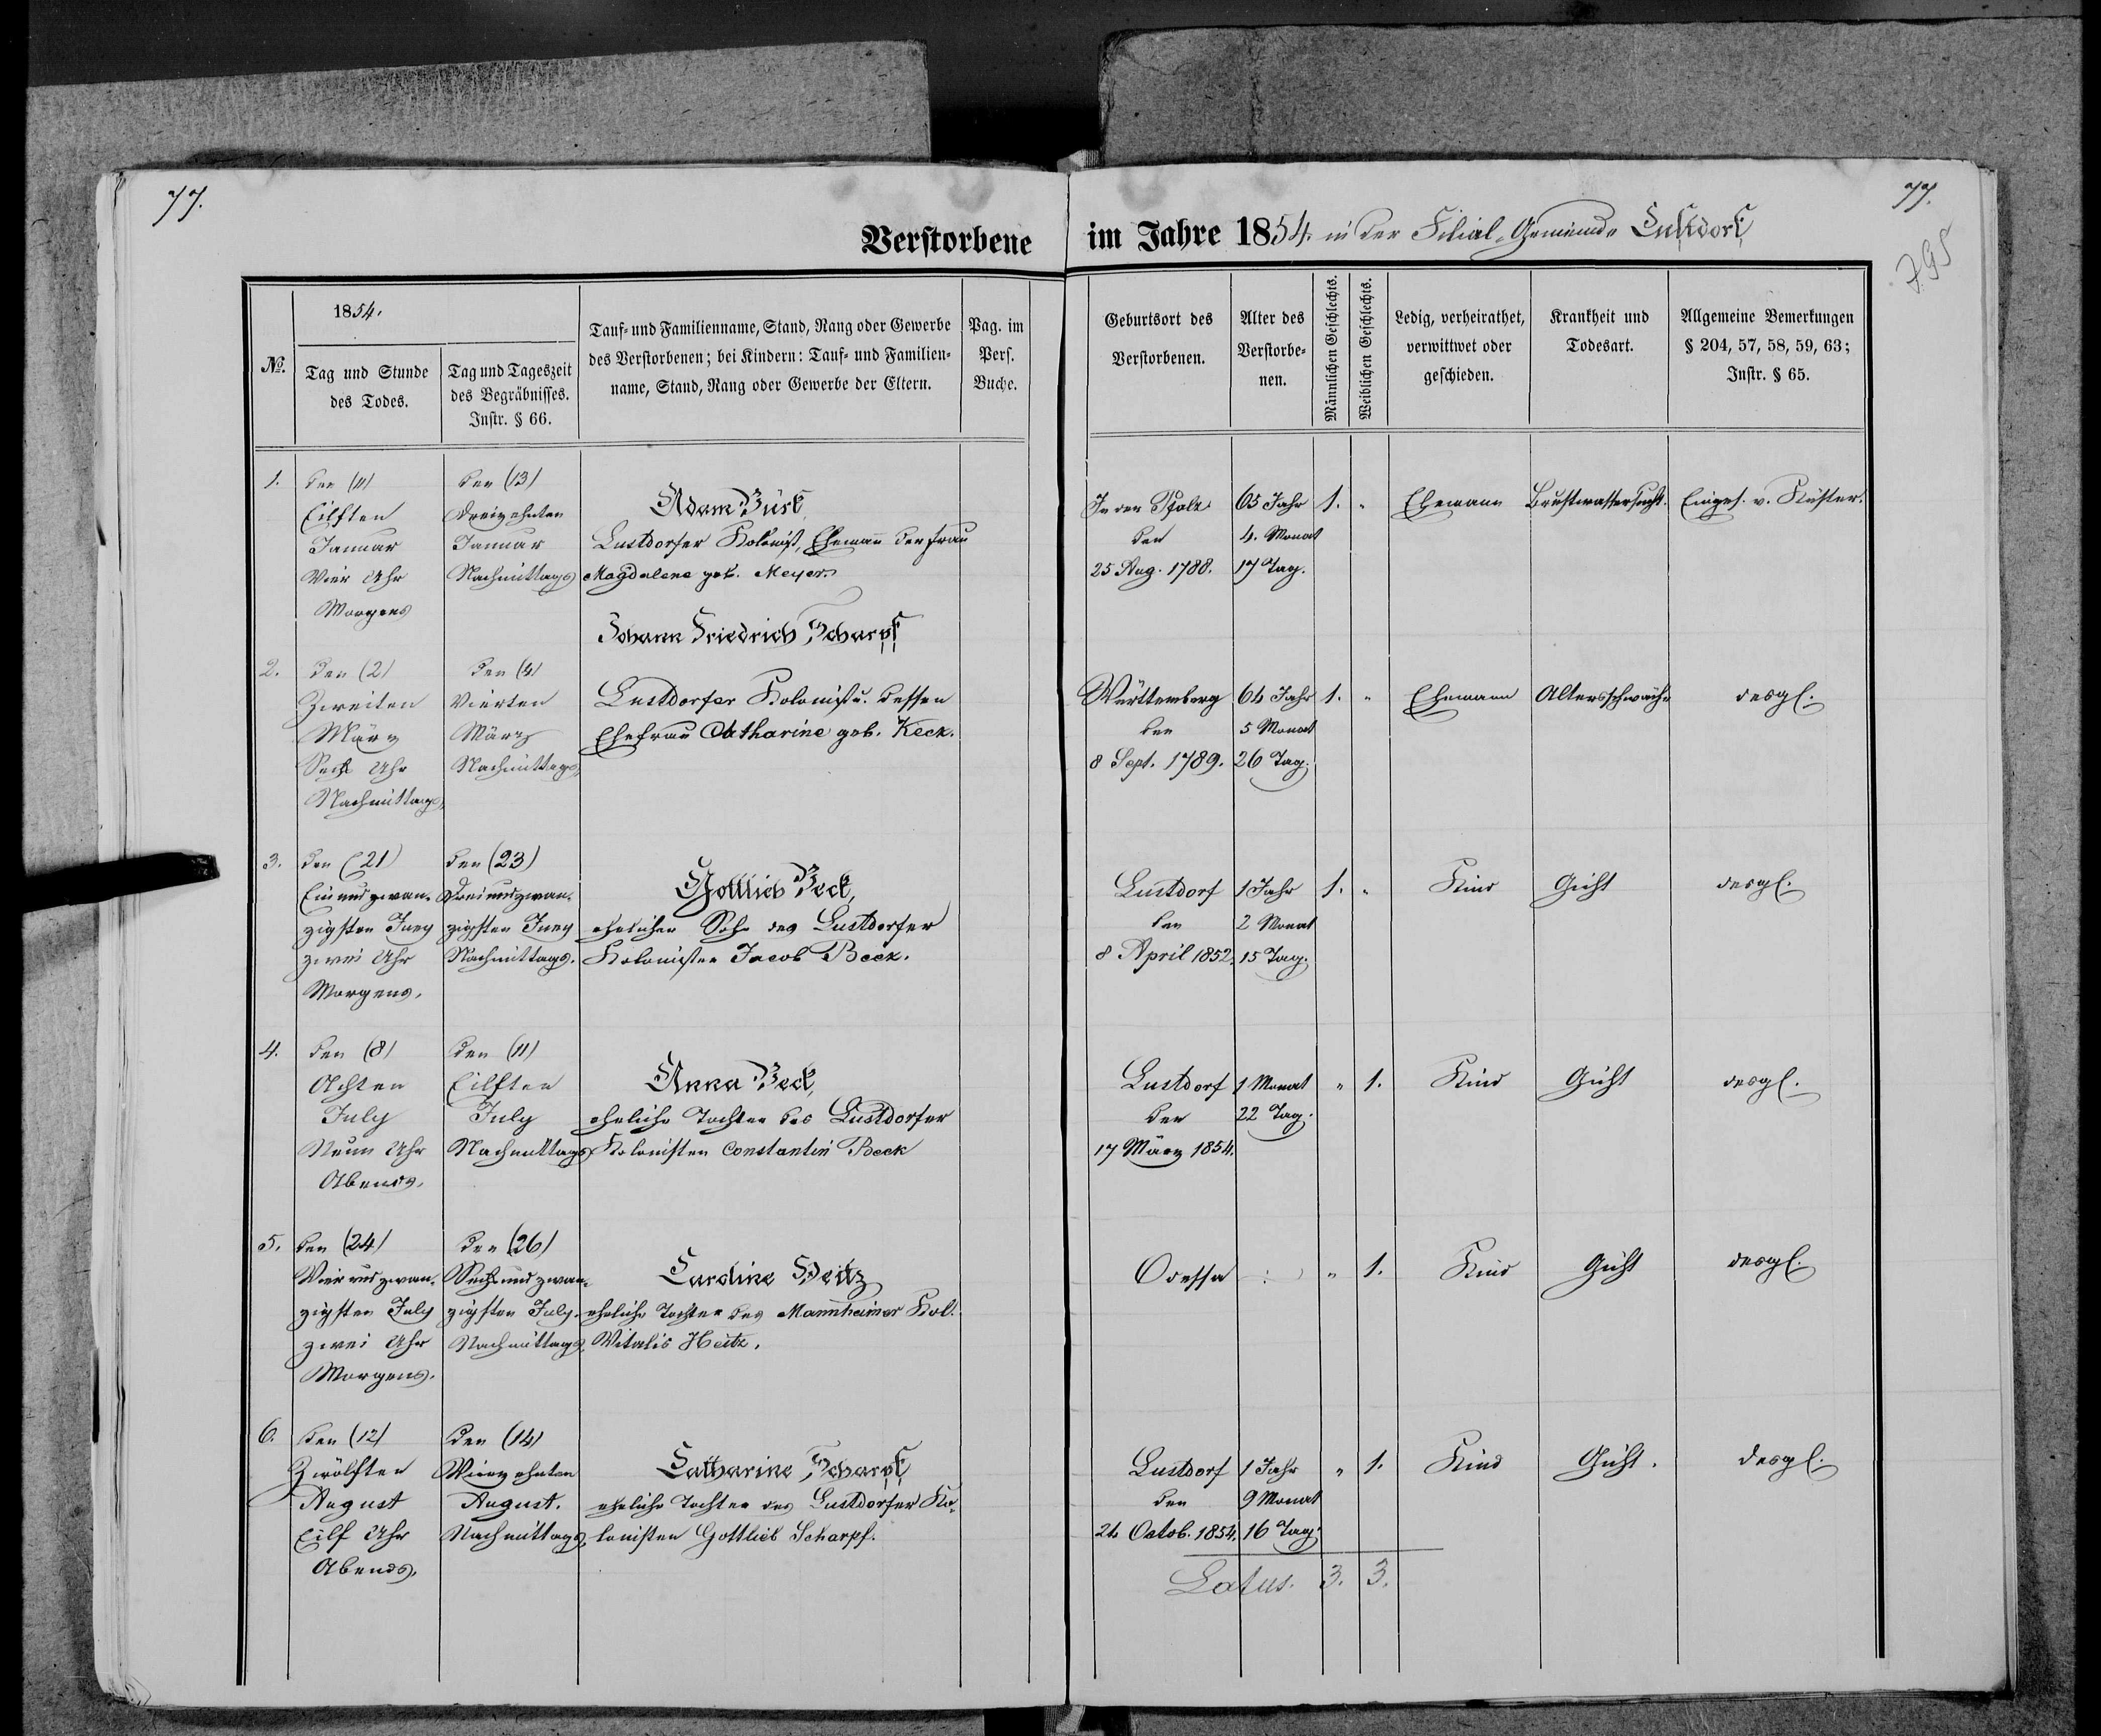 77.
77.
795
Verstorbene im Jahre 1854. in der Filial-Gemeinde Lustdorf
1854.
№.
Tag und Stunde
des Todes.
Tag und Tageszeit
des Begräbnisses.
Instr. § 66.
Tauf- und Familienname, Stand, Rang oder Gewerbe
des Verstorbenen; bei Kindern: Tauf- und Familien-
name, Stand, Rang oder Gewerbe der Eltern.
Pag. im
Pers.
Buche.
Geburtsort des
Verstorbenen.
Alter des
Verstorbe-
nen.
Männlichen Geschlechts.
Weiblichen Geschlechts.
Ledig, verheirathet,
verwittwet oder
geschieden.
Krankheit und
Todesart.
Allgemeine Bemerkungen
§ 204, 57, 58, 59, 63;
Instr. § 65.
1.
den (11)
Eilften
Januar
Vier Uhr
Morgens
den (13)
Dreizehnten
Januar
Nachmittags
Adam Bürk,
Lustdorfer Kolonist, Ehemann der Frau
Magdalena geb. Meyer.
In der Pfalz
den
25 Aug. 1788.
65 Jahr
4. Monat
17 Tag.
1.
"
Ehemann
Brustwassersucht.
Einges. v. Küster.
2.
den (2)
Zweiten
März
Sechs Uhr
Nachmittags,
den (4)
Vierten
März
Nachmittags,
Johann Friedrich Scharpf
Lustdorfer Kolonist u. dessen
Ehefrau Catharine geb. Keck.
Württemberg
den
8 Sept. 1789.
64 Jahr
5 Monat
26 Tag.
1.
"
Ehemann
Altersschwäche
desgl.
3.
den (21)
Einundzwan-
zigsten Juny
zwei Uhr
Morgens,
den (23)
Dreiundzwan-
zigsten Juny
Nachmittags.
Gottlieb Beck,
ehelicher Sohn des Lustdorfer
Kolonisten Jacob Beck.
Lustdorf
den
8 April 1852.
1 Jahr
2 Monat
15 Tag.
1.
"
Kind
Gicht
desgl.
4.
den (8)
Achten
July
Neun Uhr
Abends,
den (11)
Eilften
July
Nachmittags
Anna Beck,
eheliche Tochter des Lustdorfer
Kolonisten Constantin Beck
Lustdorf
den
17 März 1854.
1 Monat
22 Tag.
"
1.
Kind
Gicht
desgl.
5.
den (24)
Vierundzwan-
zigsten July
zwei Uhr
Morgens.
den (26)
Sechsundzwan-
zigsten July.
Nachmittags,
Caroline Heitz
eheliche Tochter des Mannheimer Kol.
Witalis Heitz.
Odessa
"
1.
Kind
Gicht
desgl.
6.
den (12)
Zwölften
August
Eilf Uhr
Abends,
den (14)
Vierzehnten
August.
Nachmittags,
Catharine Scharpf,
eheliche Tochter des Lustdorfer Ko-
lonisten Gottlieb Scharpf.
Lustdorf
den
24 Octob. 1854.
1 Jahr
9 Monat
16 Tag.
"
1.
Kind
Gicht.
desgl.
Latus. 3. 3.